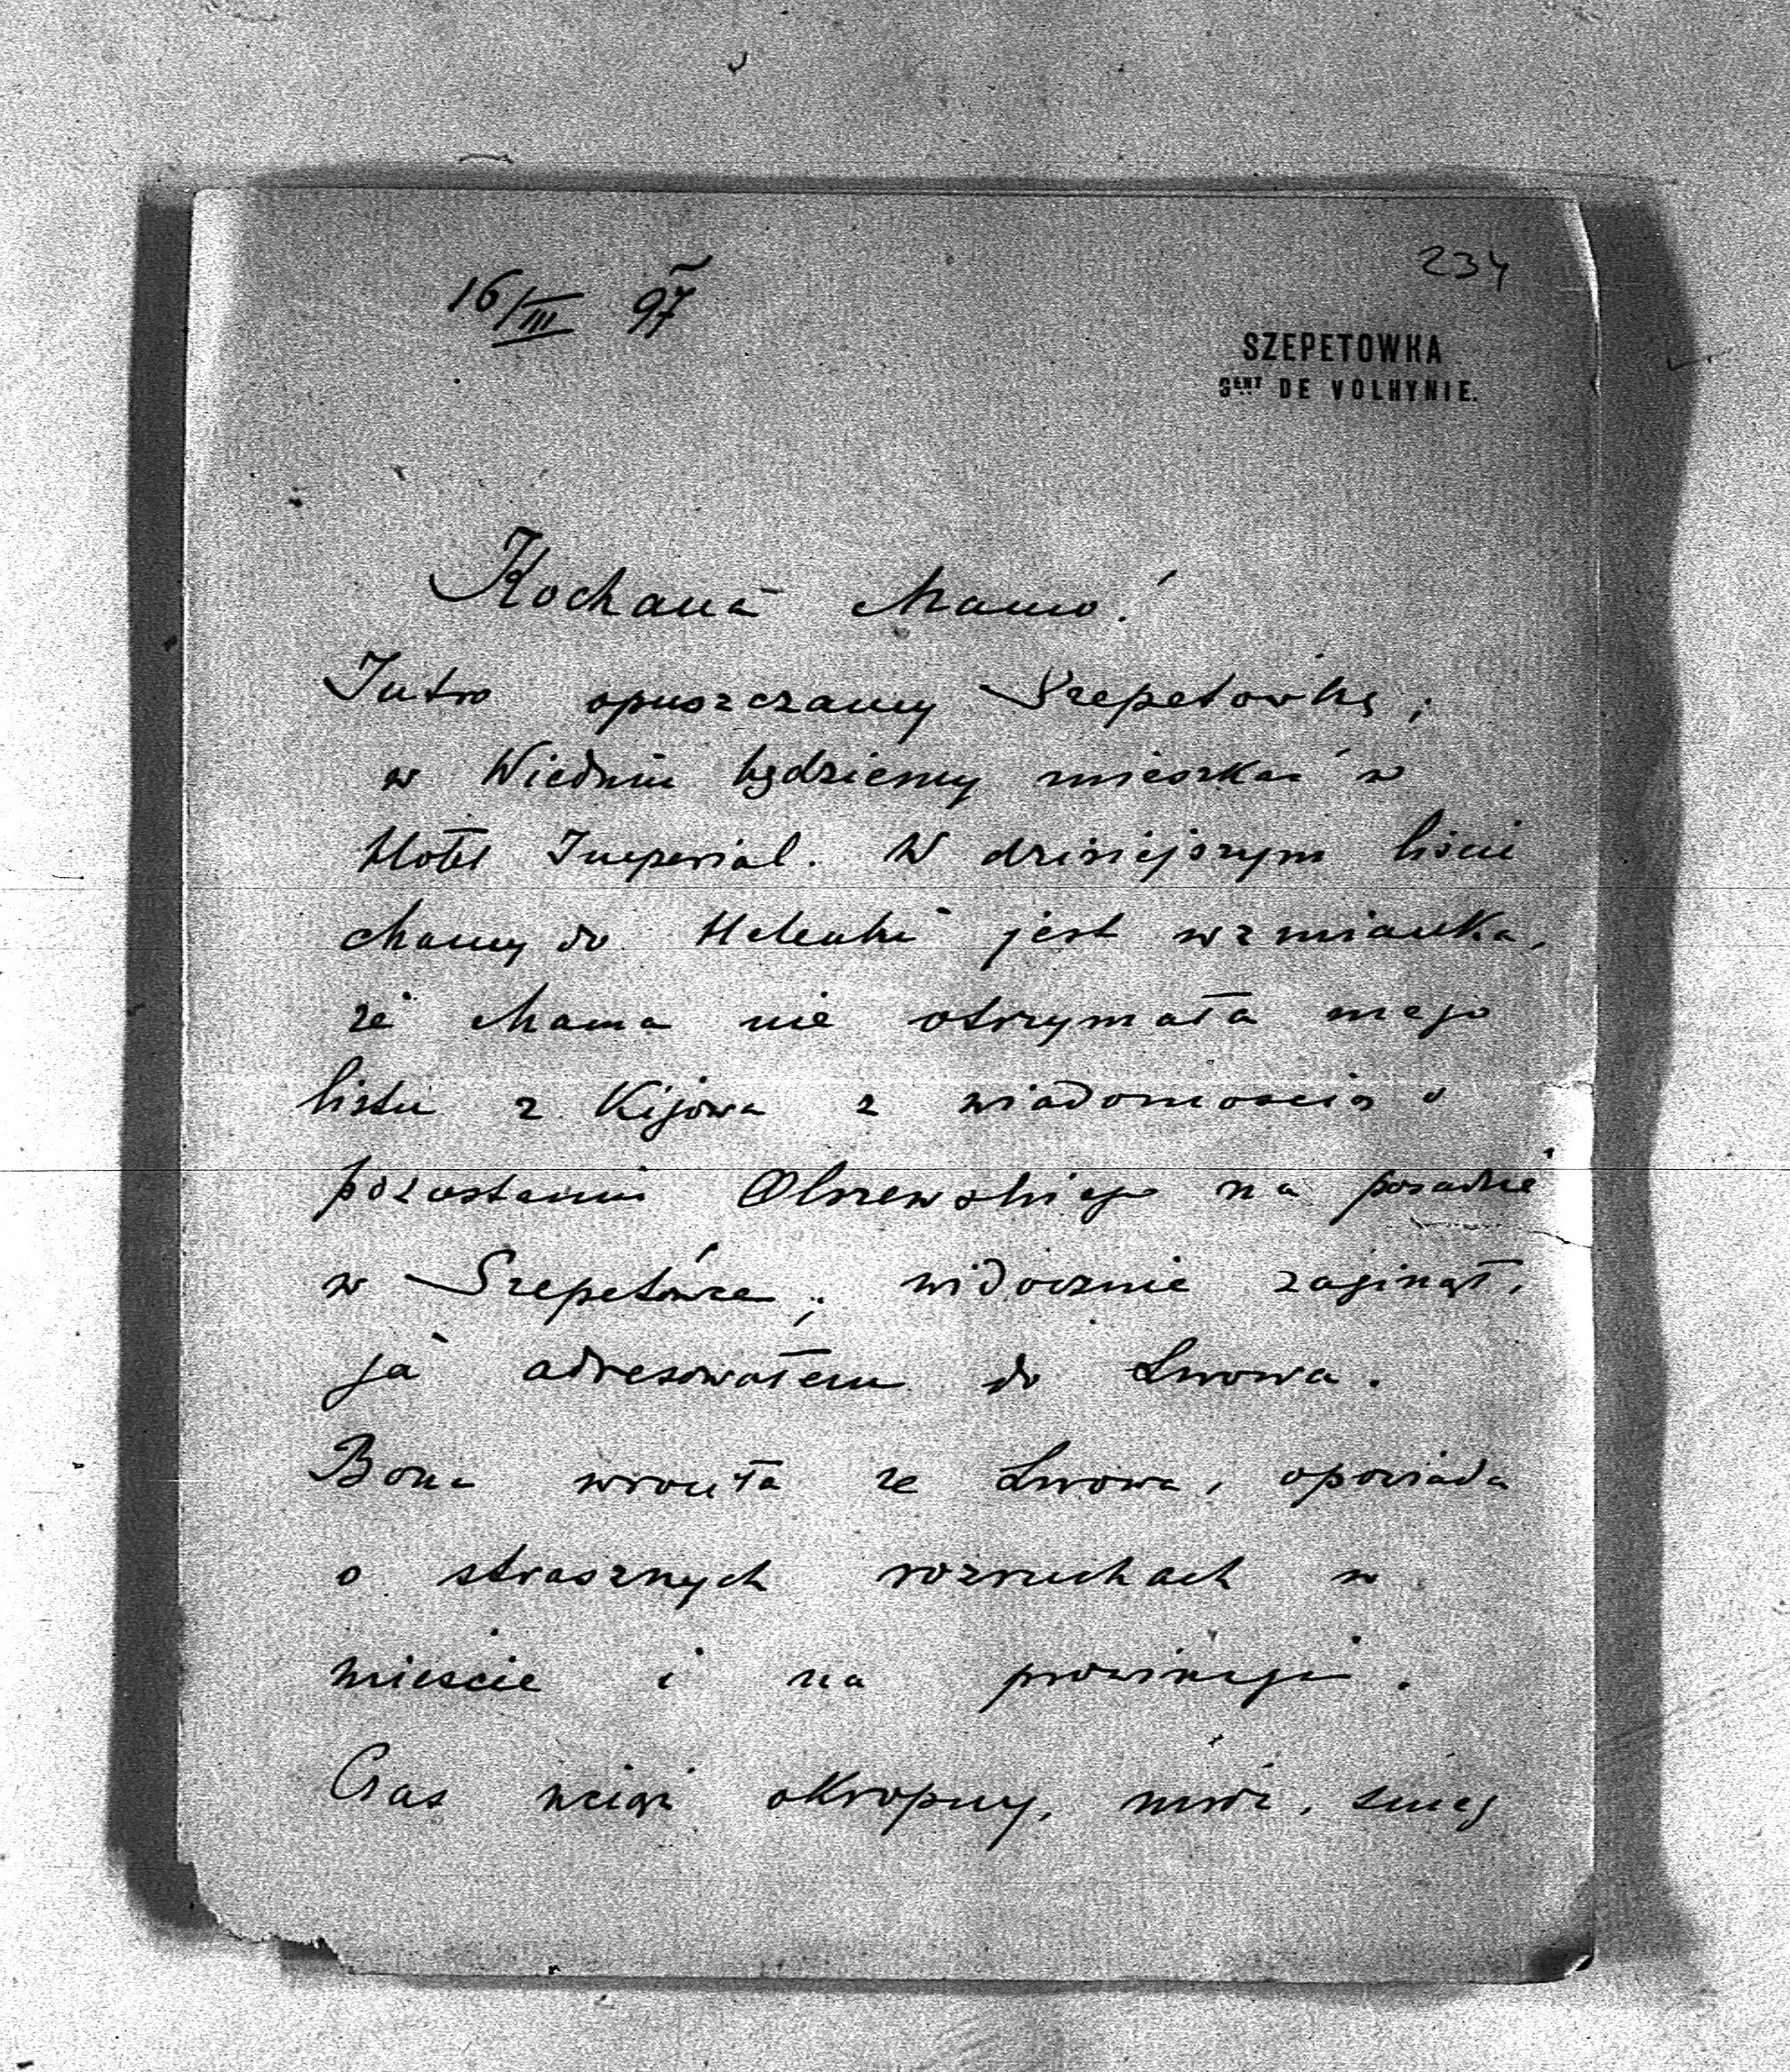 16/III 97
234
SZEPETOWKA
GENT DE VOLHYNIE.
Kochana Mamo!
Jutro opuszczamy Szepetówkę;
w Wiedniu będziemy mieszkać w
Hotel Imperial. W dzisiejszym liście
Mamy do Helenki jest wzmianka,
że Mama nie otrzymała mego
listu z Kijowa z wiadomością o
pozostaniu Olszewskiego na posadzie
w Szepetówce; widocznie zaginął,
ja adresowałem do Lwowa.
Bona wróciła ze Lwowa, opowiada
o strasznych rozruchach w
mieście i na prowincji.
Czas wciąż okropny, mróz, śnieg